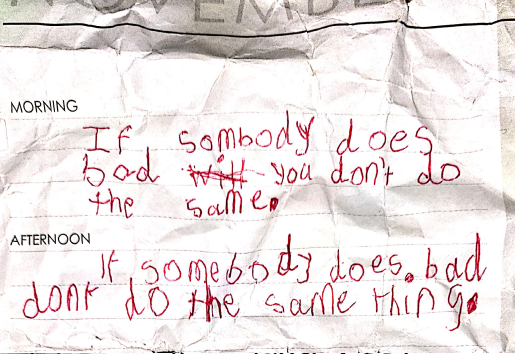 NOVEMBE
MORNING
If sombody does
bad will you don't do
the same.
AFTERNOON
If somebody does. bad
dont do the same thing.